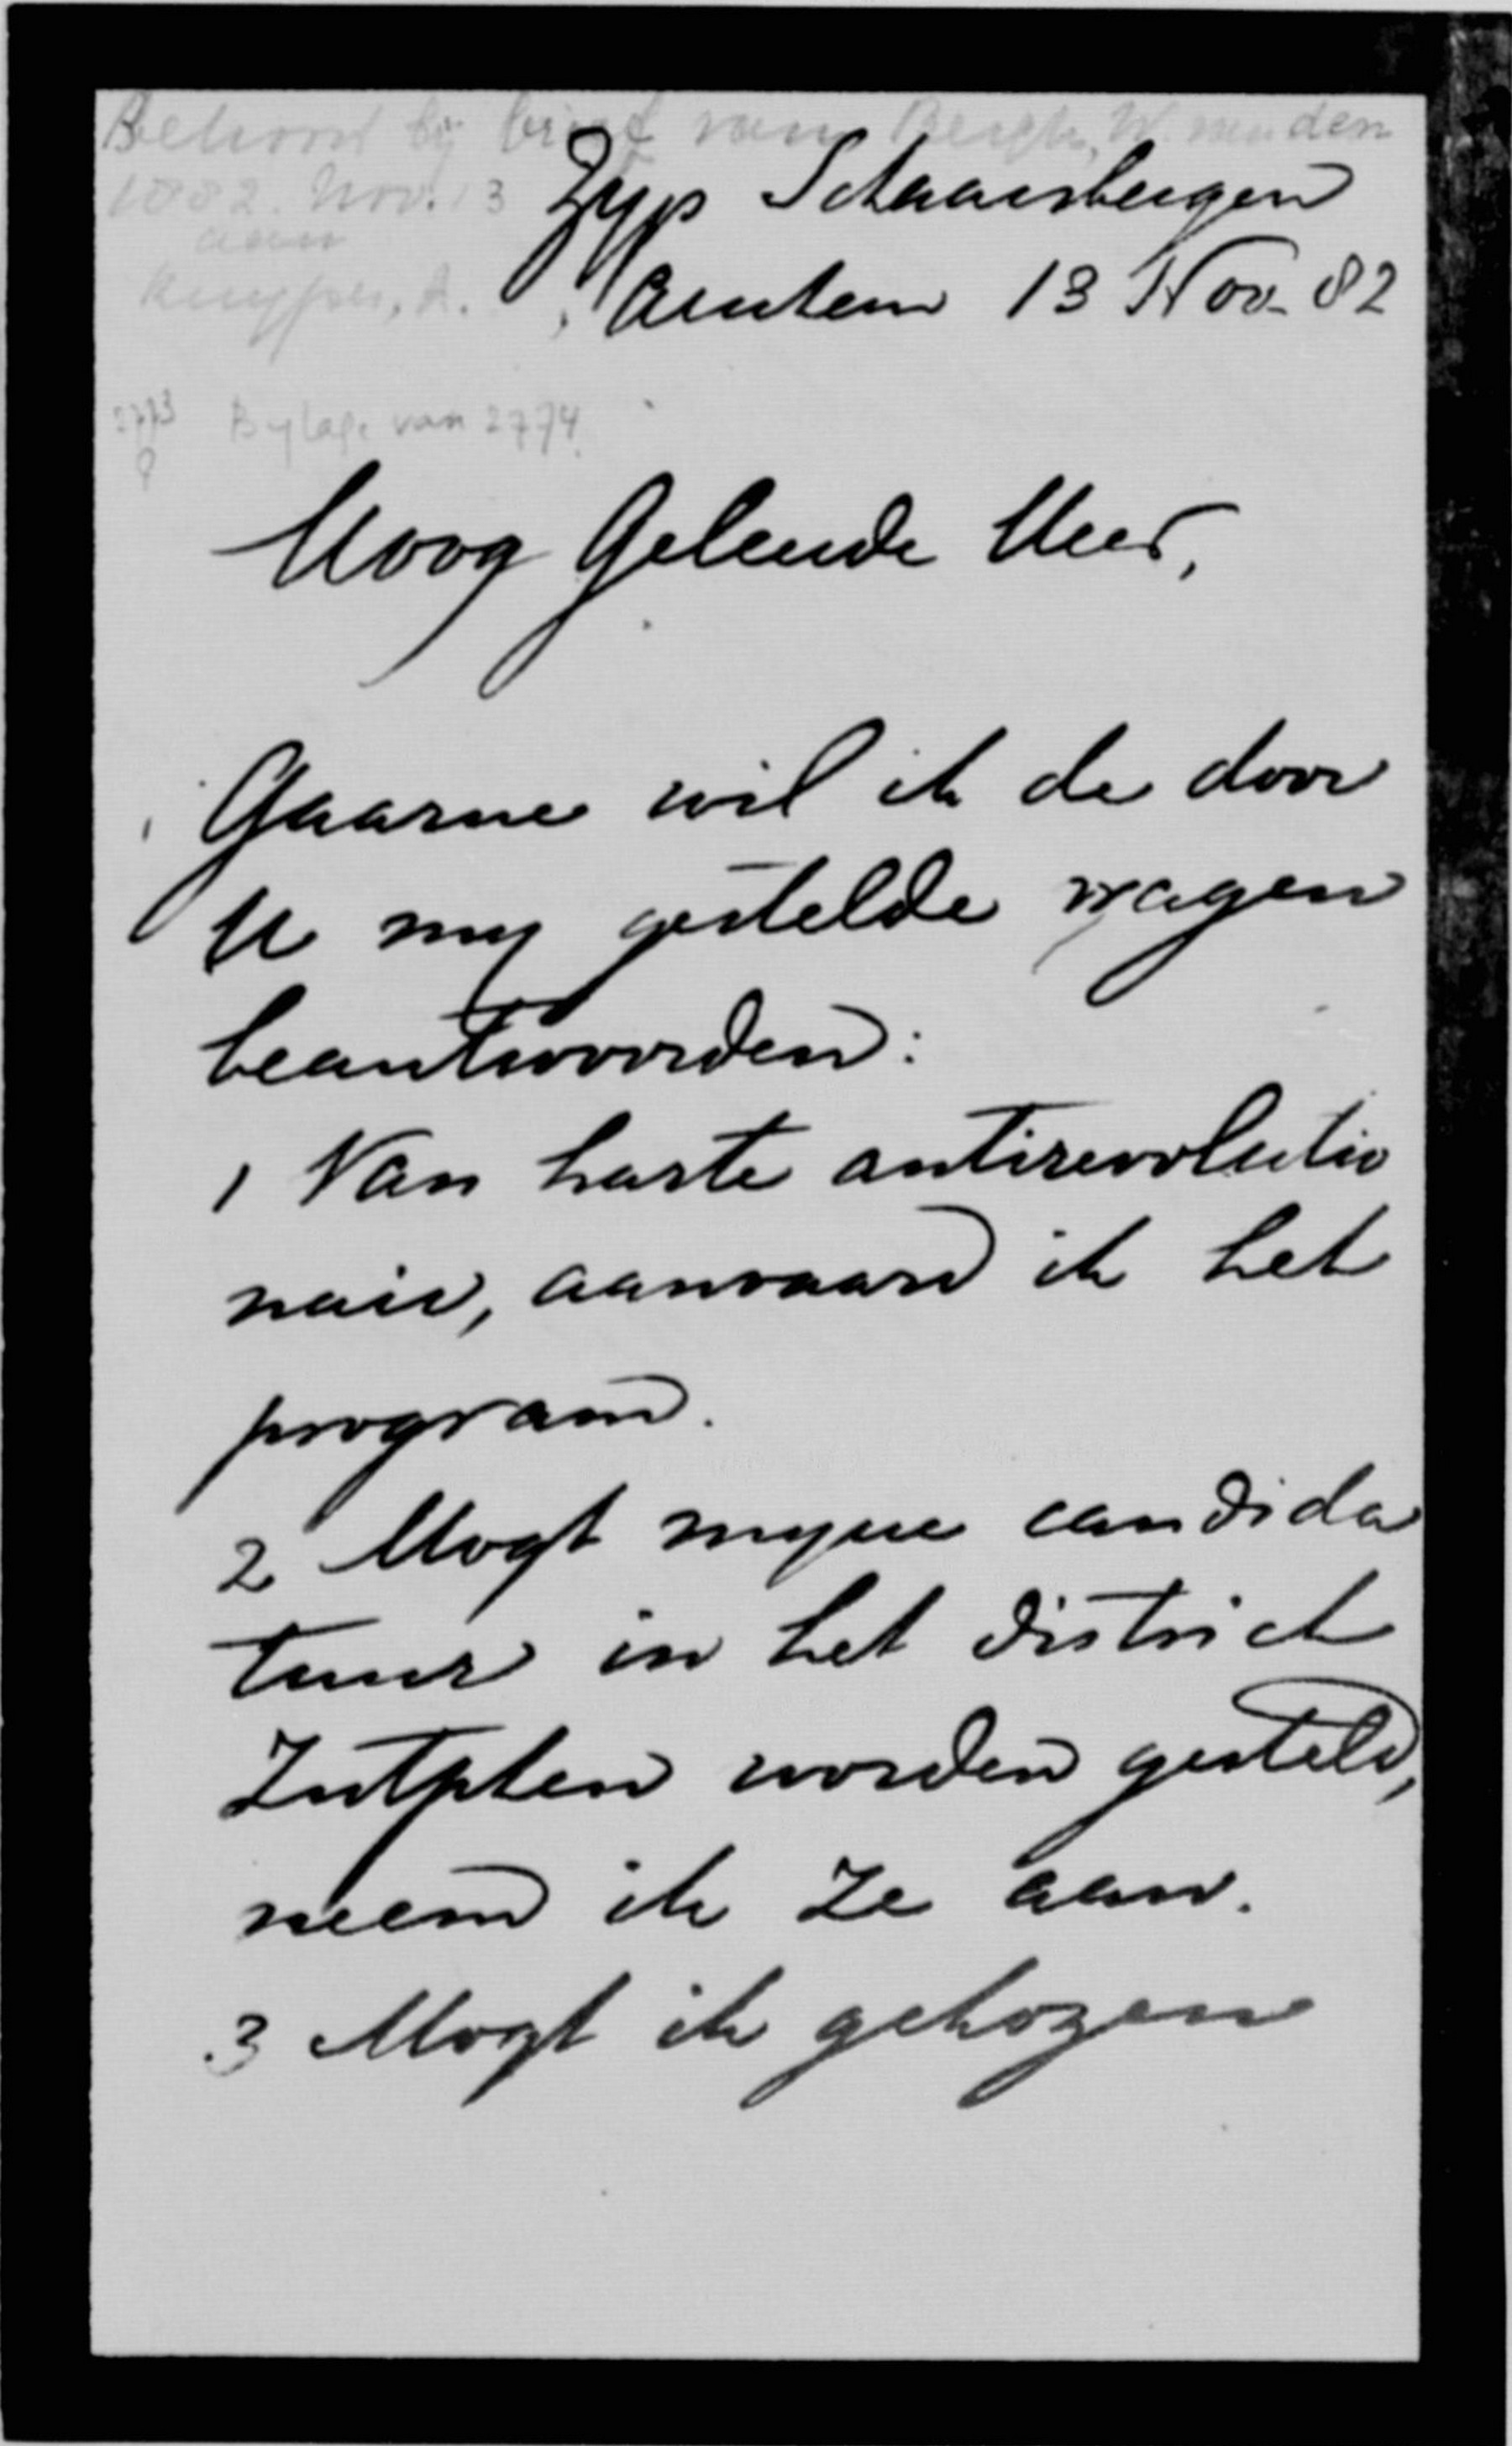 Behoort bij brief van Bergh, W. van den
1882. Nov. 13
aan
Kuyper, A.
Zyp Schaarsbergen
Arnhem 13 Nov. 82
2773 Bylage van 2774
Hoog Geleerde Heer,
Gaarne wil ik de door
U my gestelde vragen
beantwoorden:
1 Van harte antirevolutio
nair, aanvaard ik het
program.
2 Mogt myne candida
tuur in het district
Zutphen worden gesteld,
neem ik ze aan.
3 Mogt ik gekozen